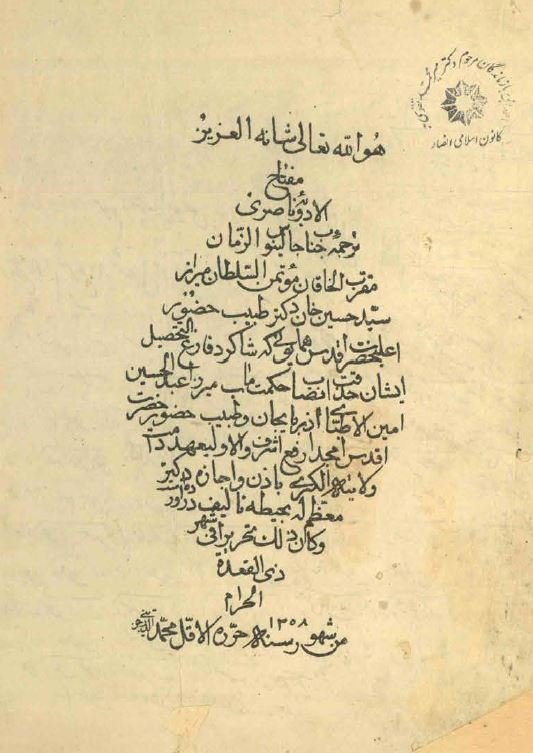 هُوالله تعالی شانه العزیز
مفتاح
الادویهٔ ناصری
ترجمهٔ جناب جالینوالزمان
مقرب الخاقان مؤتمن السلطان میرزا
سید حسین خان دکتر طبیب حضور
اعلیحضرت اقدس همایونی که شاکرد فارغ التحصیل
ایشان حذاقت انتصاب حکمت مآب میرزا عبدالحسین
امین الاطبای آذربایجان وطبیب حضور حضرت
اقدس امجد ارفع اشرف والا ولیعهد دامت
ولایتهالکبری باذن واجازه دکتر
معظم له بحیطه تالیف درآورد
وکان ذلک تحریرا فی شهر
ذی القعدة
الحرام
من شهور سنه ۱۳۰۸ حرره الاقل محمد
کانون اسلامی انصار